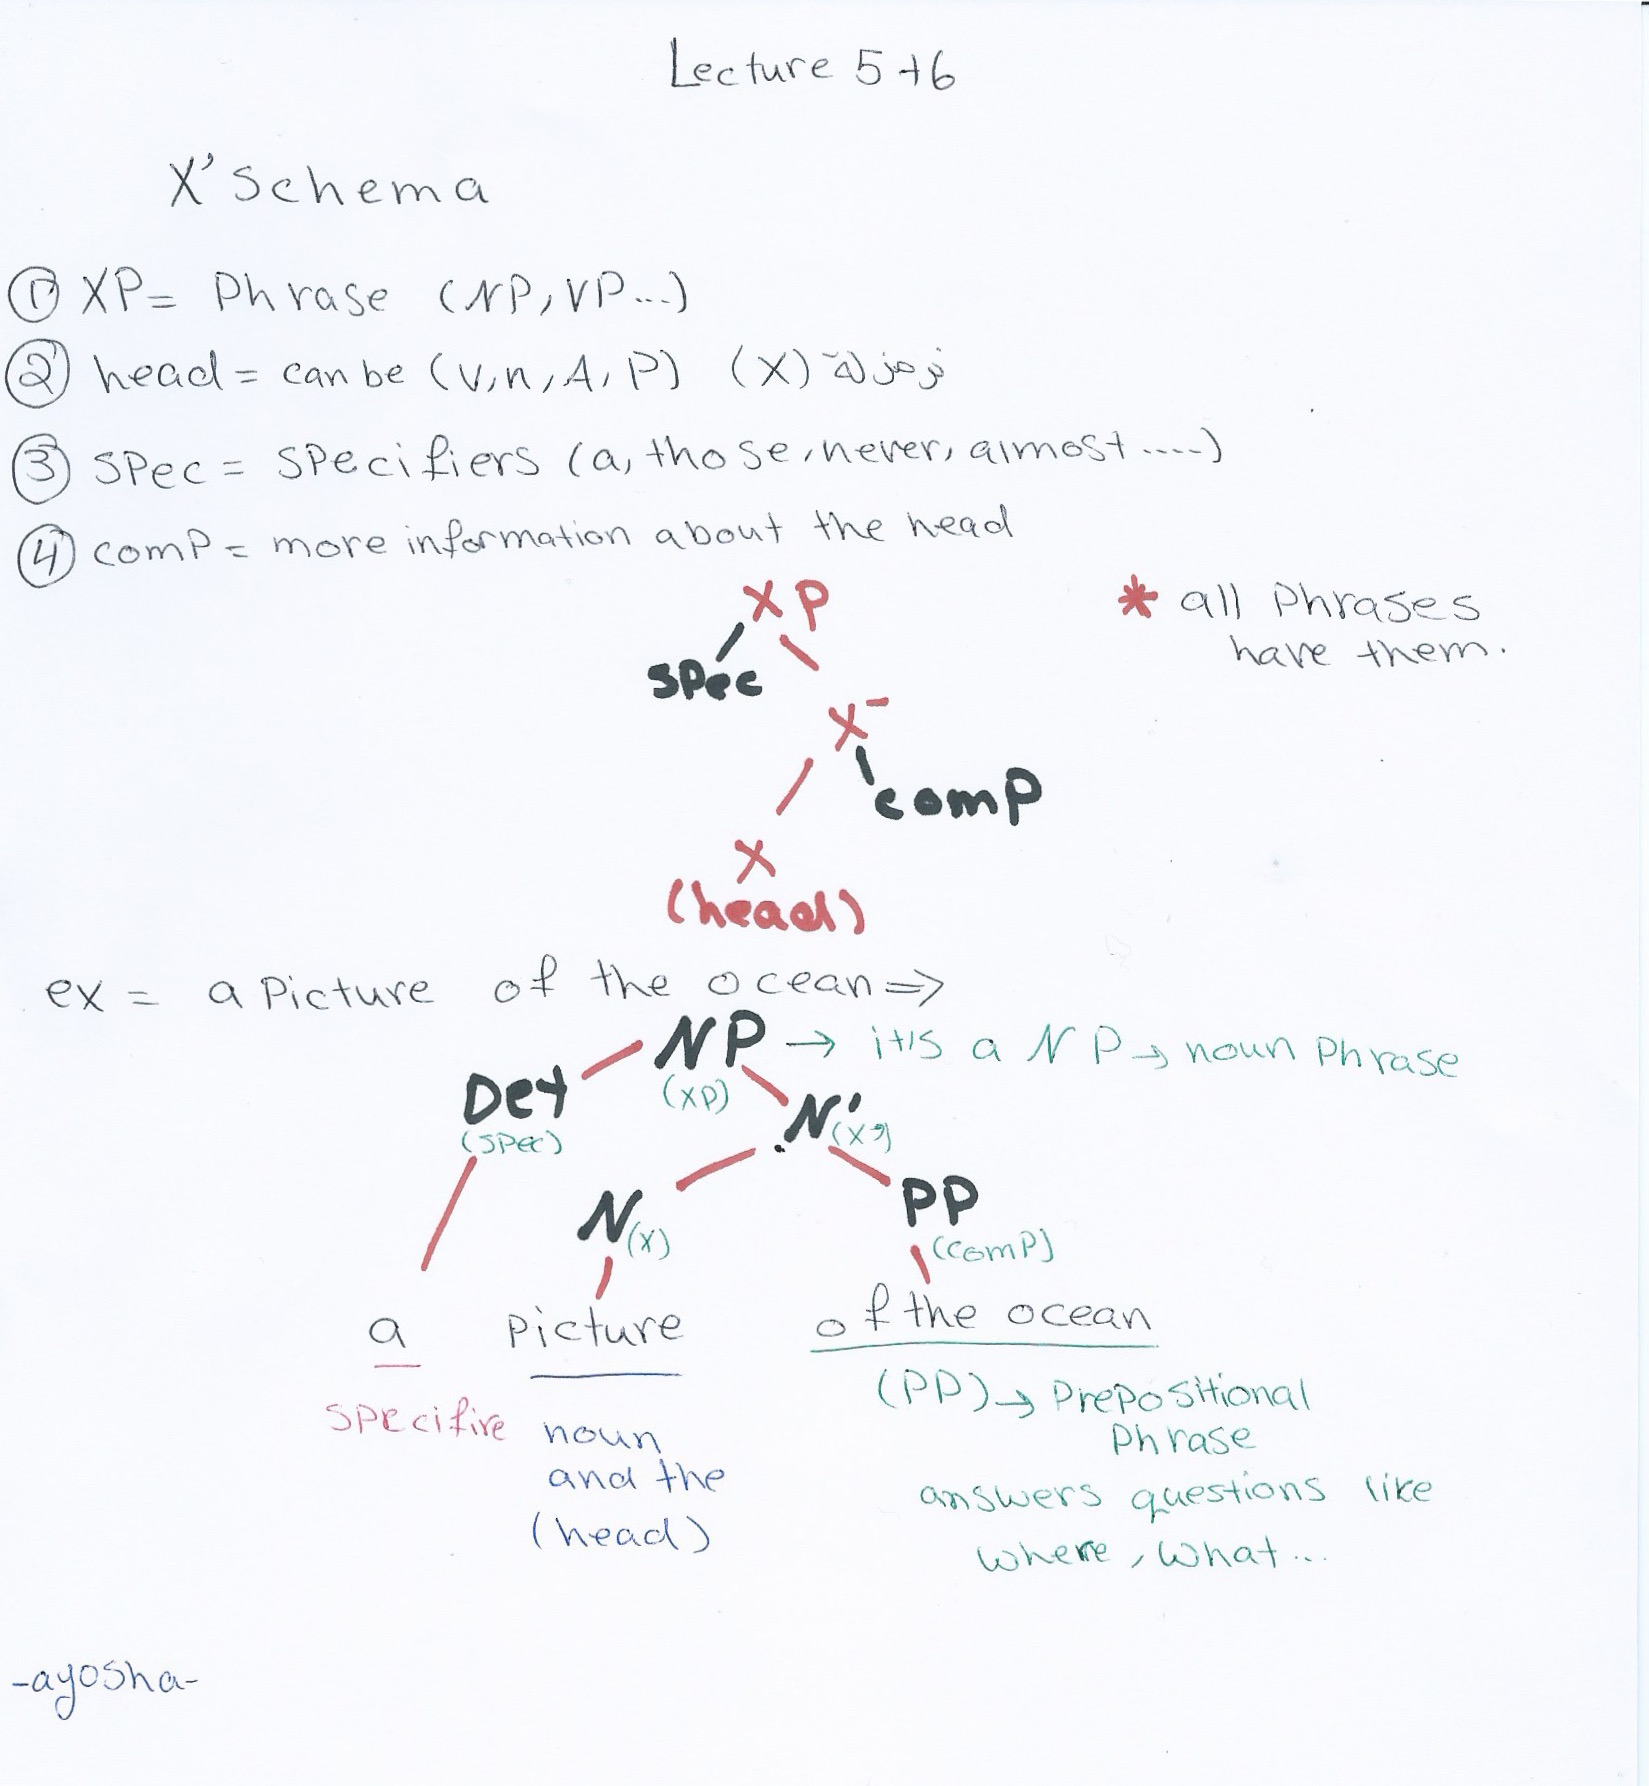 Lecture 5+6
X' Schema
① XP= Phrase (NP, VP...)
② head = can be (V, n, A, P) (X) نرمز له
③ SPec = SPecifiers (a, those, never, almost ....)
④ comP = more information about the head
* all Phrases
have them.
XP
SPec
X-
comP
X
(head)
ex = a Picture of the ocean ⇒
NP → it's a NP → noun Phrase
(XP)
Det
(SPec)
N' (X')
N (X)
PP
(comP)
a Picture of the ocean
specifire
noun
and the
(head)
(PP) → PrePositional
Phrase
answers questions like
where, what...
-ayosha-